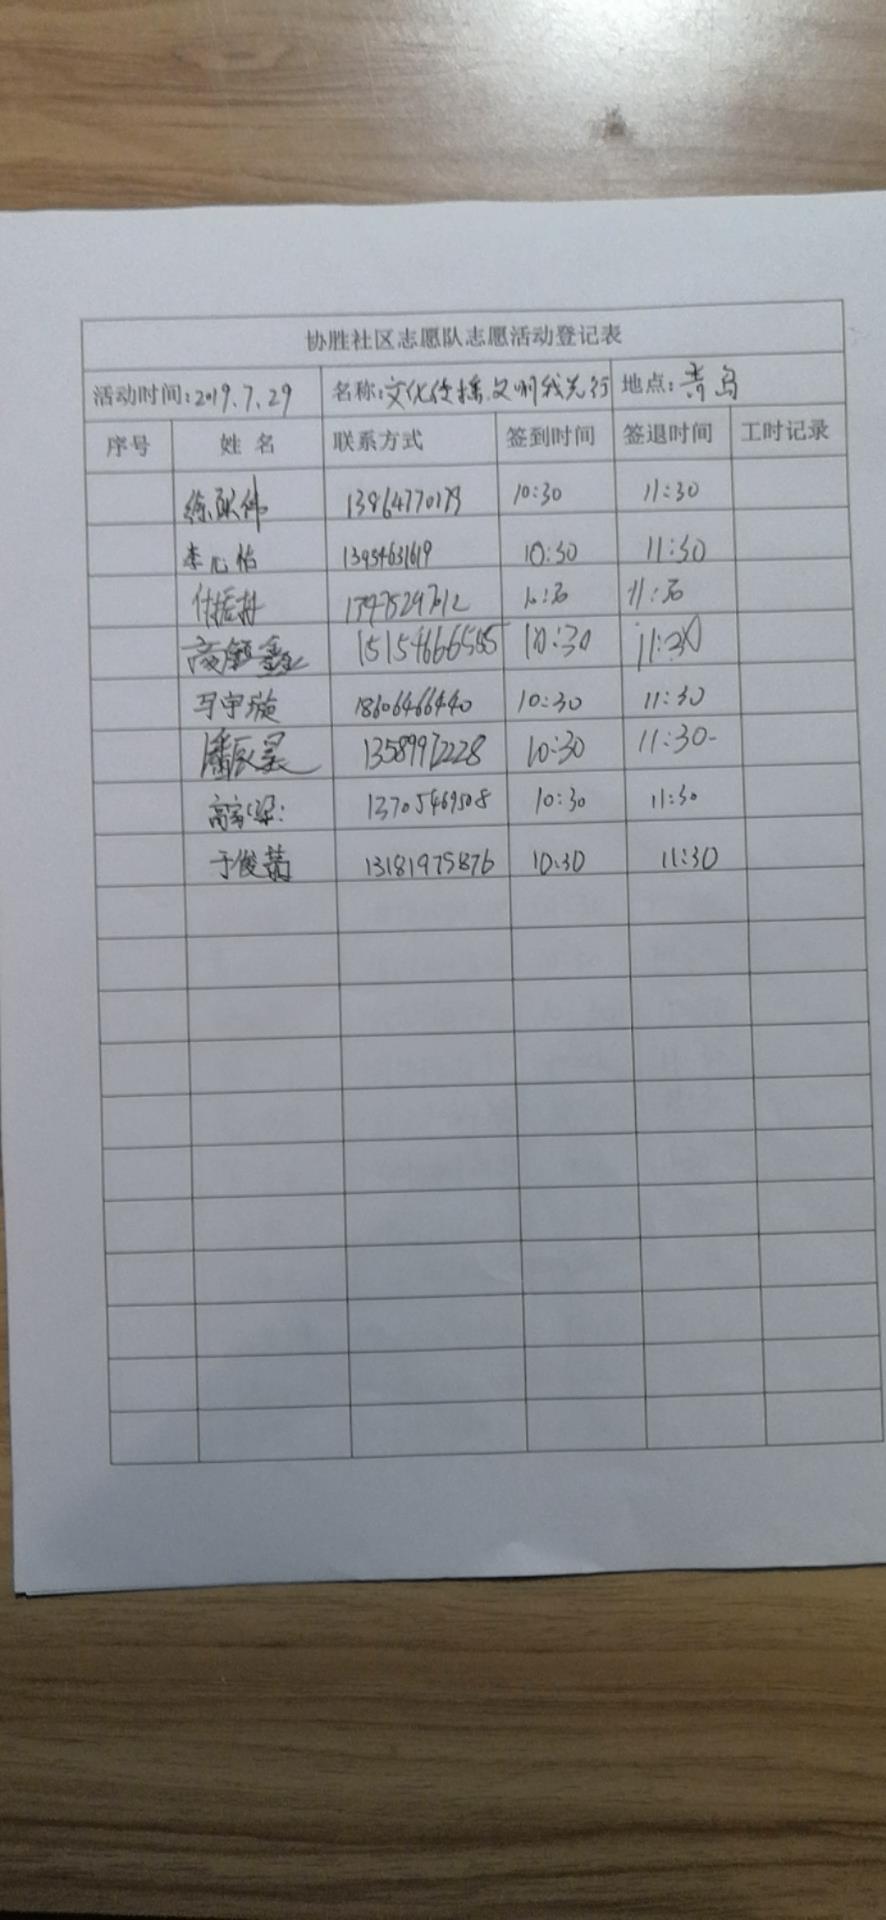 协胜社区志愿队志愿活动登记表
活动时间:2019.7.29 名称:文化传播.文明我先行 地点:青鸟
序号 姓名 联系方式 签到时间 签退时间 工时记录
10:30 11:30
李心怡 13954631619 10:30 11:30
10:30 11:30
高 鑫 15154666565 10:30 11:30
马宇璇 18606466440 10:30 11:30
潘辰昊 13589972228 10:30 11:30
高 13705469508 10:30 11:30
于俊 13181975876 10:30 11:30